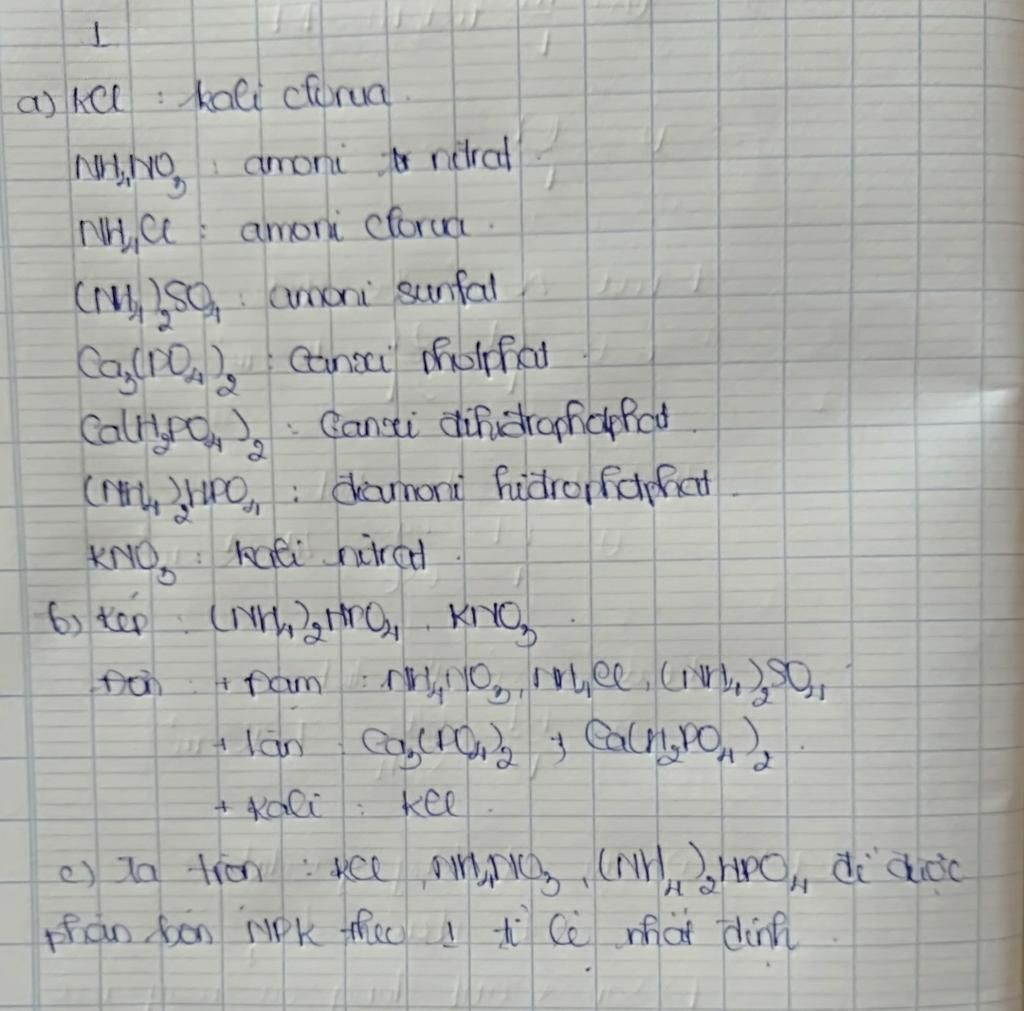 1
a) KCl : kali clorua.
NH₄NO₃ : amoni nitrat
NH₄Cl : amoni clorua.
(NH₄)₂SO₄ : amoni sunfat
Ca₃(PO₄)₂ : Canxi photphat
Ca(H₂PO₄)₂ : Canxi đihidrophotphat
(NH₄)₂HPO₄ : điamoni hidrophotphat
KNO₃ : kali nitrat.
b) kép : (NH₄)₂HPO₄, KNO₃.
Đơn : + Đạm : NH₄NO₃, NH₄Cl, (NH₄)₂SO₄
+ lân : Ca₃(PO₄)₂, Ca(H₂PO₄)₂.
+ kali : KCl.
c) Ta trộn : KCl, NH₄NO₃, (NH₄)₂HPO₄ để được
phân bón NPK theo 1 tỉ lệ nhất định.